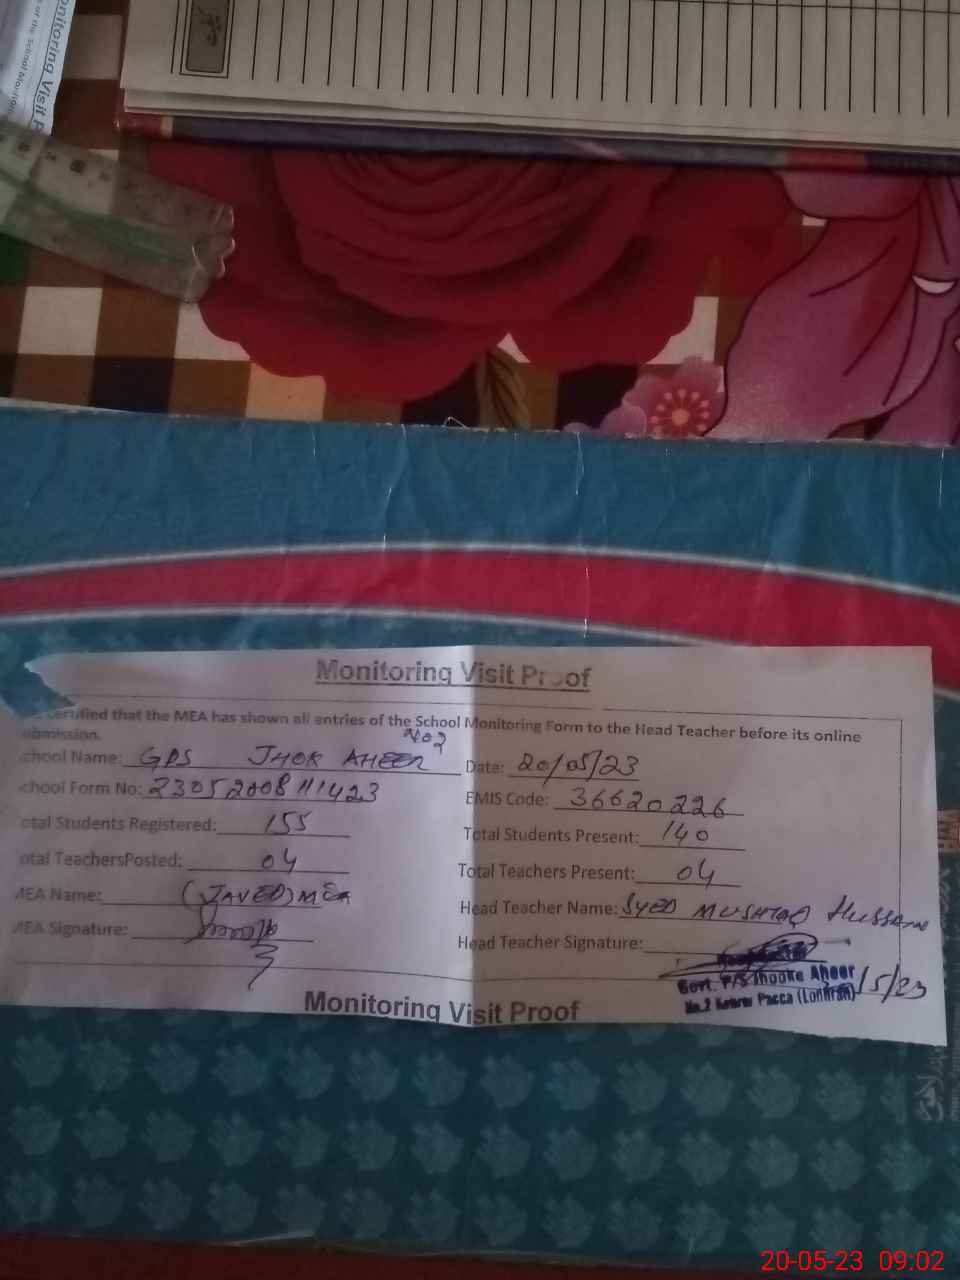 onitoring Visit P
s of the School Monitor
Monitoring Visit Proof
certified that the MEA has shown all entries of the School Monitoring Form to the Head Teacher before its online
ubmission.
chool Name: GPS JHOK AHEER No2 Date: 20/05/23
chool Form No: 23052008111423 EMIS Code: 36620226
otal Students Registered: 155 Total Students Present: 140
otal TeachersPosted: 04 Total Teachers Present: 04
MEA Name: (JAVED) MEA Head Teacher Name: SYED MUSHTAQ Hussain
MEA Signature: Head Teacher Signature:
Govt. P/S Jhooke Aheer /5/23
No.2 Kehror Pacca (Lodhran)
Monitoring Visit Proof
20-05-23 09:02